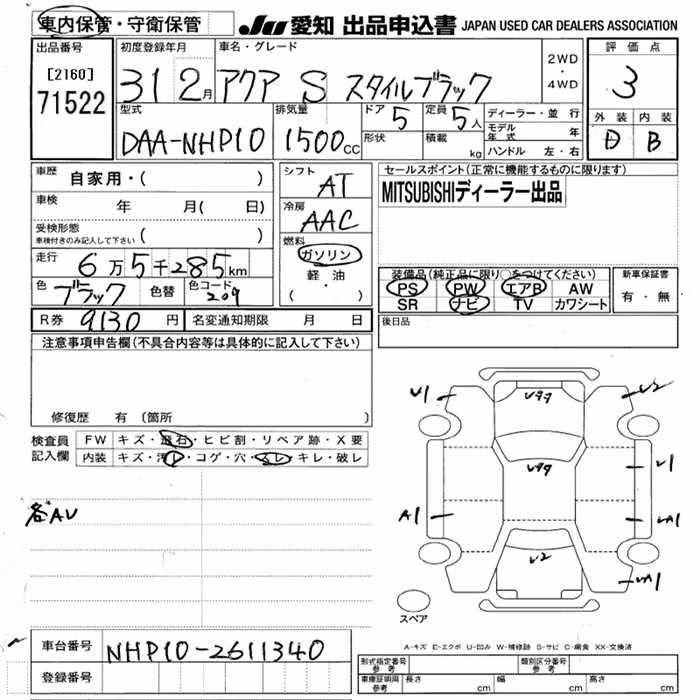 車内保管・守衛保管 JU 愛知 出品申込書 JAPAN USED CAR DEALERS ASSOCIATION
出品番号 [2160] 71522
初度登録年月 31 2月
車名・グレード アクア S スタイルブラック
2WD・4WD
評価点 3
外装 内装
D B
型式 DAA-NHP10
排気量 1500cc
ドア 5 定員 5人
形状 積載 kg
ディーラー・並行
モデル年式 年
ハンドル 左・右
車歴 自家用・( )
車検 年 月( 日)
受検形態 ( )
車検付きのみ記入して下さい
走行 6万5千285km
色 ブラック 色替 色コード 209
R券 9130円 名変通知期限 月 日
シフト AT
冷房 AAC
燃料 ガソリン
軽・油
( ・ )
セールスポイント(正常に機能するものに限ります)
MITSUBISHIディーラー出品
装備品(純正品に限り○をつけてください)
PS PW エアB AW
SR ナビ TV カワシート
新車保証書
有・無
後日品
注意事項申告欄(不具合内容等は具体的に記入して下さい)
修復歴 有 〔箇所 〕
検査員記入欄
FW キズ・飛石・ヒビ割・リペア跡・X要
内装 キズ・汚レ・コゲ・穴・スレ・キレ・破レ
各AU
U1 U99 U2
U99 U1
A1 UA1
U2 UA1
スペア
A-キズ E-エクボ U-凹み W-補修跡 S-サビ C-腐食 XX-交換済
車台番号 NHP10-2611340
登録番号
形式指定番号 参考 類別区分番号 参考
車庫証明用 参考 長さ cm 幅 cm 高さ cm